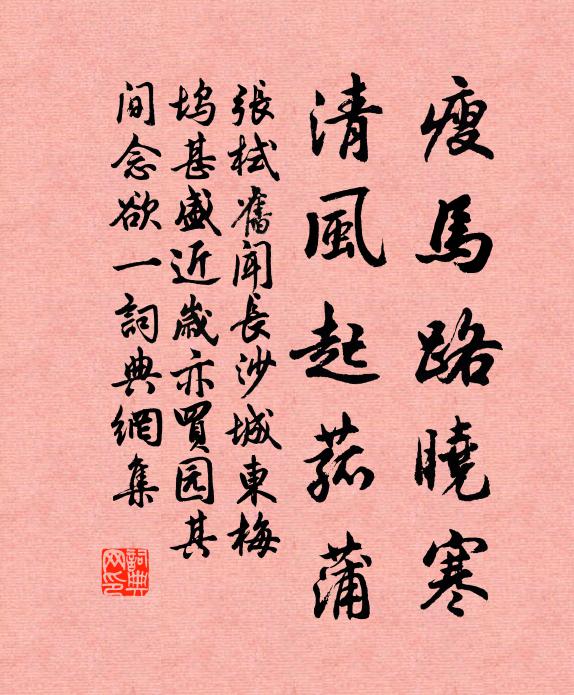 瘦馬路曉寒
清風起菰蒲
張栻舊聞長沙城東梅
塢甚盛近歲亦買园其
間念欲一詞典網集
詞典网印